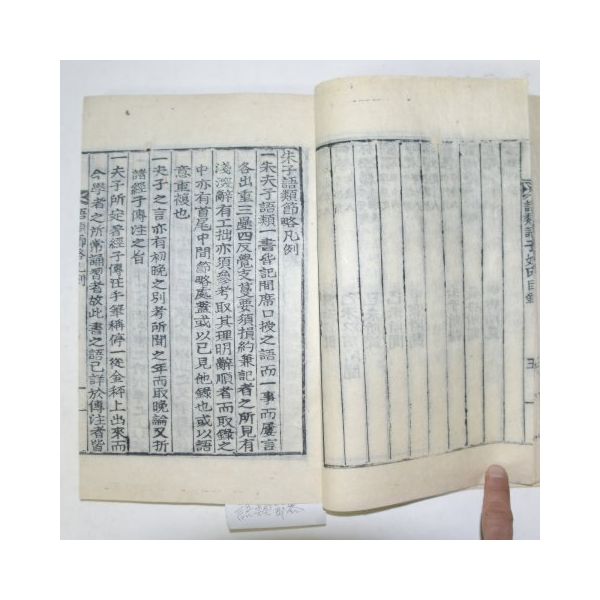 朱子語類節略凡例
一朱夫子語類一書皆記聞席口授之語而一事而屢言
各出重三疊四反覺支蔓要須損約兼記者之所見有
淺深辭有工拙亦須參考取其理明辭順者而取錄之
中亦有首尾中間節略處蓋或以已見他錄也或以語
意重複也
一夫子之言亦有初晚之別考所聞之年而取晚論又折
諸經子傳注之旨
一夫子所定著經子傳注手筆稱停一從金秤上出來而
今學者之所常誦習者故此書之語已詳於傳注者皆
語類節略凡例